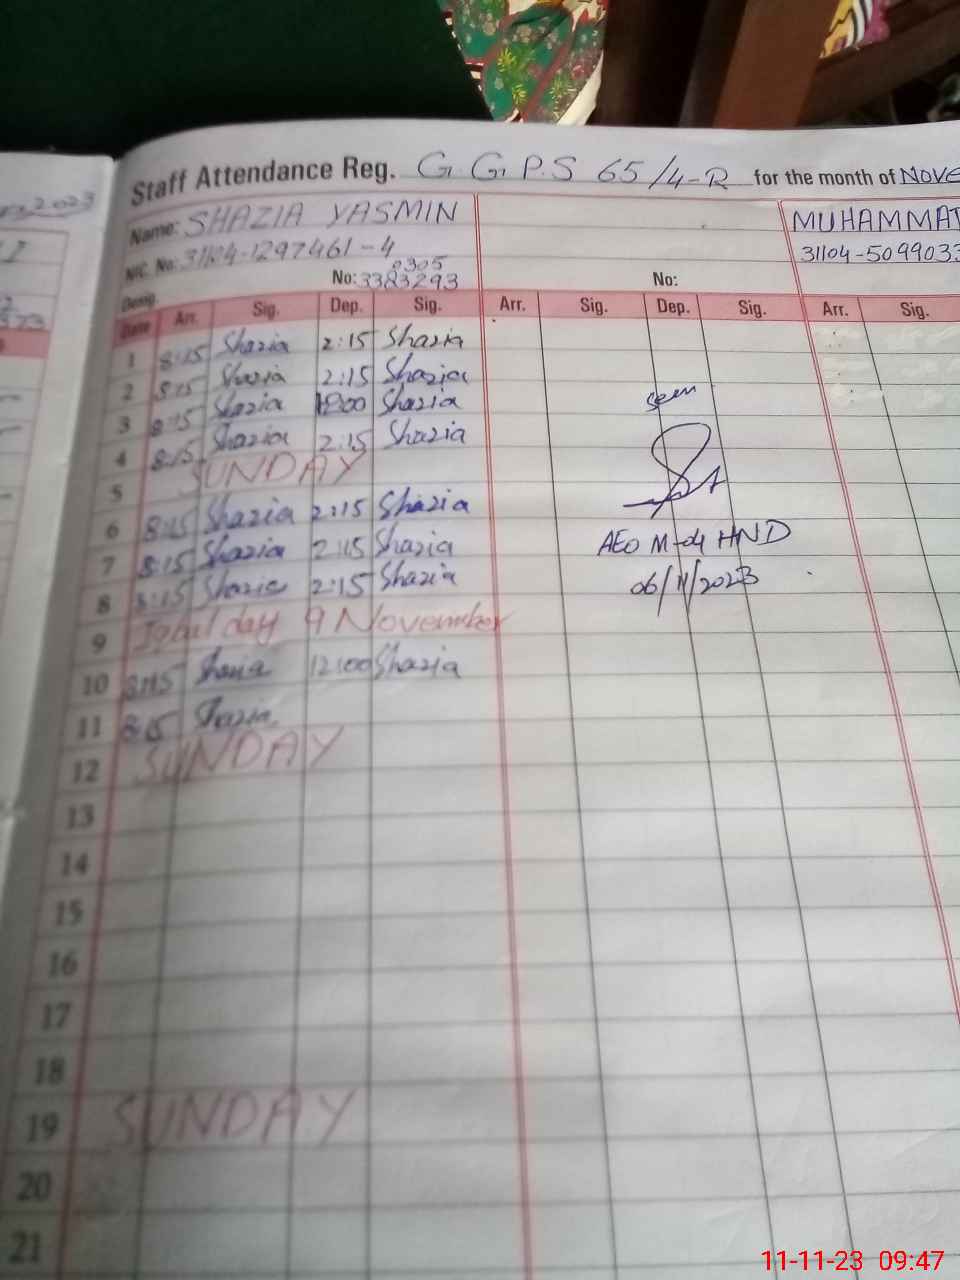 Staff Attendance Reg. G.G.P.S 65/4-R for the month of NOVE
Name: SHAZIA YASMIN MUHAMMAT
NIC. No: 31104-1297461-4 31104-5099033
0305
Desig. No: 3383293 No:
Date Arr. Sig. Dep. Sig. Arr. Sig. Dep. Sig. Arr. Sig.
1 8:15 Shazia 2:15 Shazia
2 8:15 Shazia 2:15 Shazia
3 8:15 Shazia Shazia seen
4 8:15 Shazia 2:15 Shazia
5 SUNDAY
6 8:15 Shazia 2:15 Shazia
7 8:15 Shazia 2:15 Shazia AEO M-04 HND
8 8:15 Shazia 2:15 Shazia 06/11/2023
9 Iqbal day 9 November
10 8:15 Shazia 12:00 Shazia
11 8:15 Shazia
12 SUNDAY
13
14
15
16
17
18
19 SUNDAY
20
21
2023
11-11-23 09:47